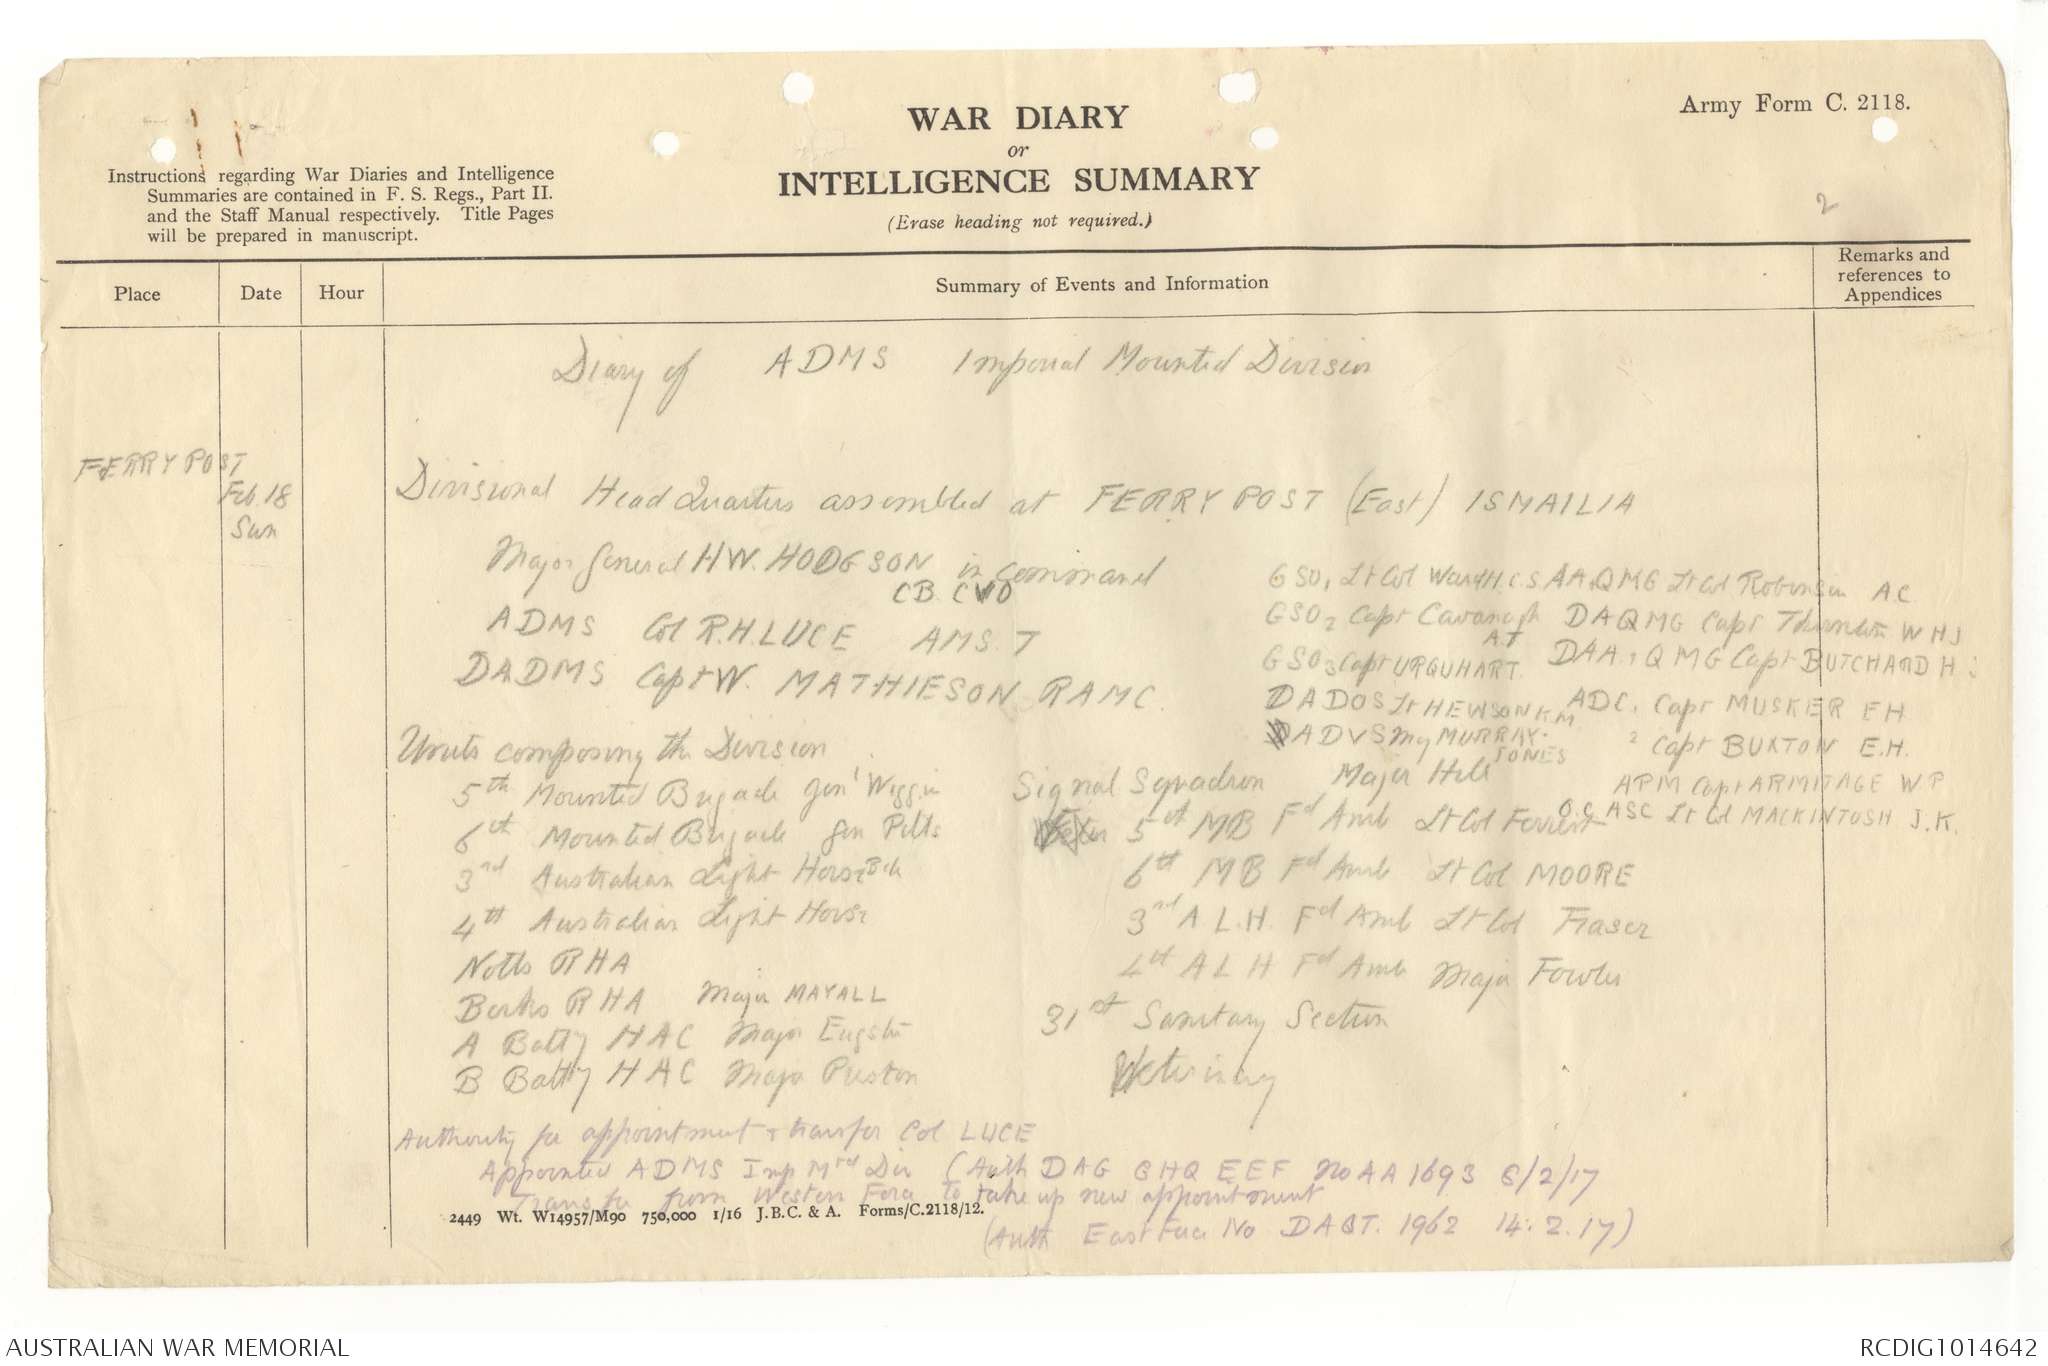 Army Form C. 2118.
WAR DIARY
or
INTELLIGENCE SUMMARY
(Erase heading not required.)
Instructions regarding War Diaries and Intelligence
Summaries are contained in F. S. Regs., Part II.
and the Staff Manual respectively. Title Pages
will be prepared in manuscript.
2
Place
Date
Hour
Summary of Events and Information
Remarks and
references to
Appendices
Diary of ADMS Imperial Mounted Division
FERRY POST
Feb. 18
Sun
Divisional Head Quarters assembled at FERRY POST (East) ISMAILIA
Major General H.W. HODGSON in command
CB CVO
ADMS Col R.H. LUCE AMS. T
DADMS Capt W. MATHIESON RAMC.
GSO1 Lt Col H.C.S AA,QMG Lt Col Robinson AC
GSO2 Capt Cavanagh DAQMG Capt Thurnton WHJ
A.T
GSO3 Capt URQUHART. DAA,QMG Capt BUTCHARD H.J
DADOS Lt HEWSON K M ADC, Capt MUSKER EH
ADVS Maj MURRAY- 2 Capt BUXTON E.H.
JONES
APM Capt ARMITAGE W P
O.C ASC Lt Col MACKINTOSH J.K.
Units composing the Division
5th Mounted Brigade Genl Wiggin
6th Mounted Brigade Gen Pitts
3rd Australian Light Horse Bde
4th Australian Light Horse
Notts RHA
Berks RHA Major MAYALL
A Batty HAC Major Eugster
B Batty HAC Major Preston
Signal Squadron Major Hill
5th MB Fd Amb Lt Col Forrest
6th MB Fd Amb Lt Col MOORE
3rd A.L.H. Fd Amb Lt Col Fraser
4th A L H Fd Amb Major Fowler
31st Sanitary Section
Veterinary
Authority for appointment & transfer Col LUCE
Appointed ADMS Imp Mtd Div (Auth DAG GHQ EEF No AA 1693 6/2/17
Transfer from Western Force to take up new appointment
(Auth East Force No DAGT. 1962 14.2.17)
2449 Wt. W14957/M90 750,000 1/16 J.B.C. & A. Forms/C.2118/12.
AUSTRALIAN WAR MEMORIAL
RCDIG1014642